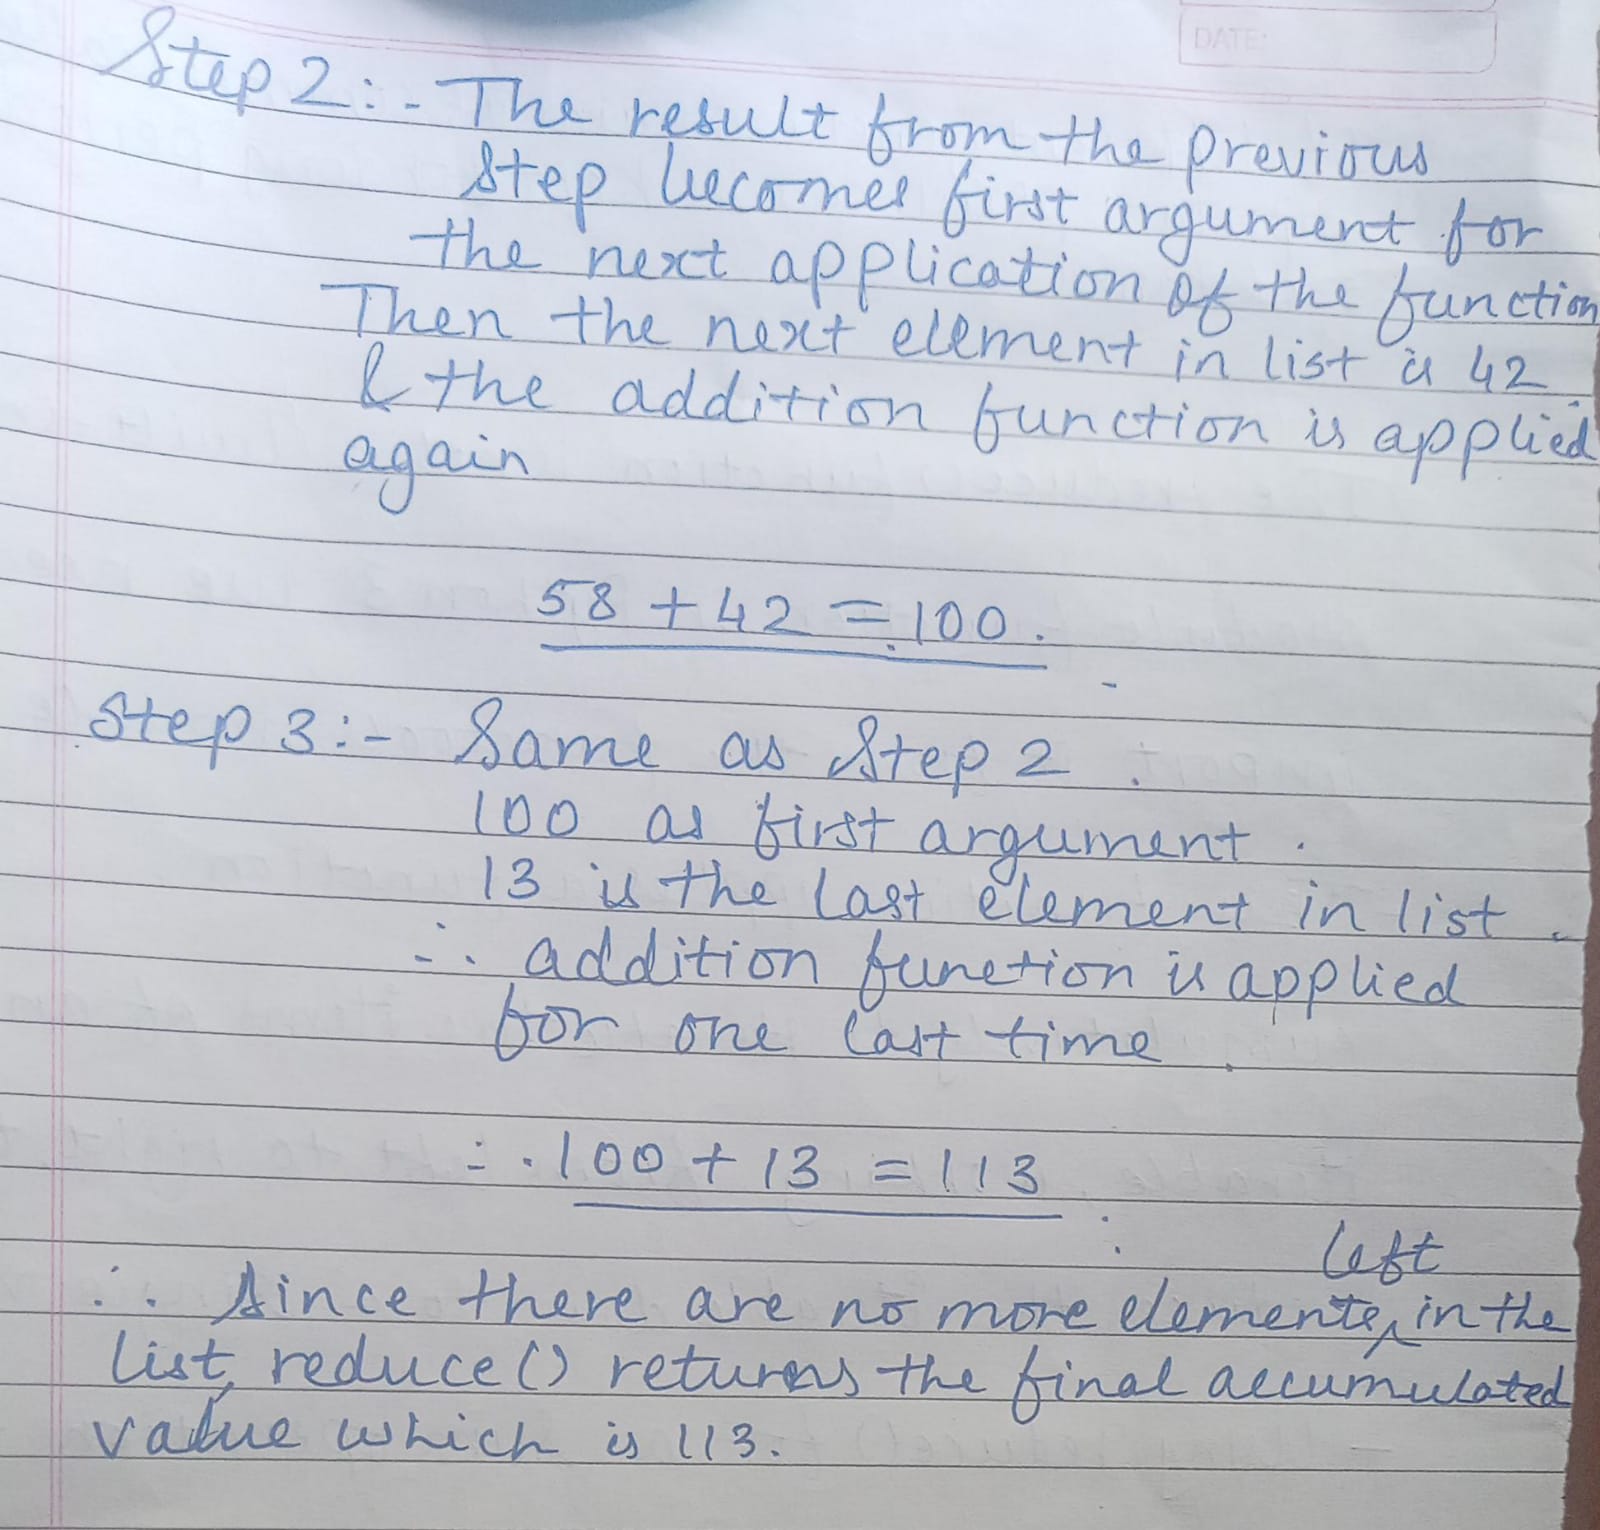 DATE:
Step 2:- The result from the previous
step becomes first argument for
the next application of the function
Then the next element in list is 42
& the addition function is applied
again
58 + 42 = 100.
Step 3:- Same as Step 2.
100 as first argument.
13 is the last element in list.
∴ addition function is applied
for one last time.
∴ 100 + 13 = 113
left
∴ Since there are no more elements‸ in the
list, reduce() returns the final accumulated
value which is 113.